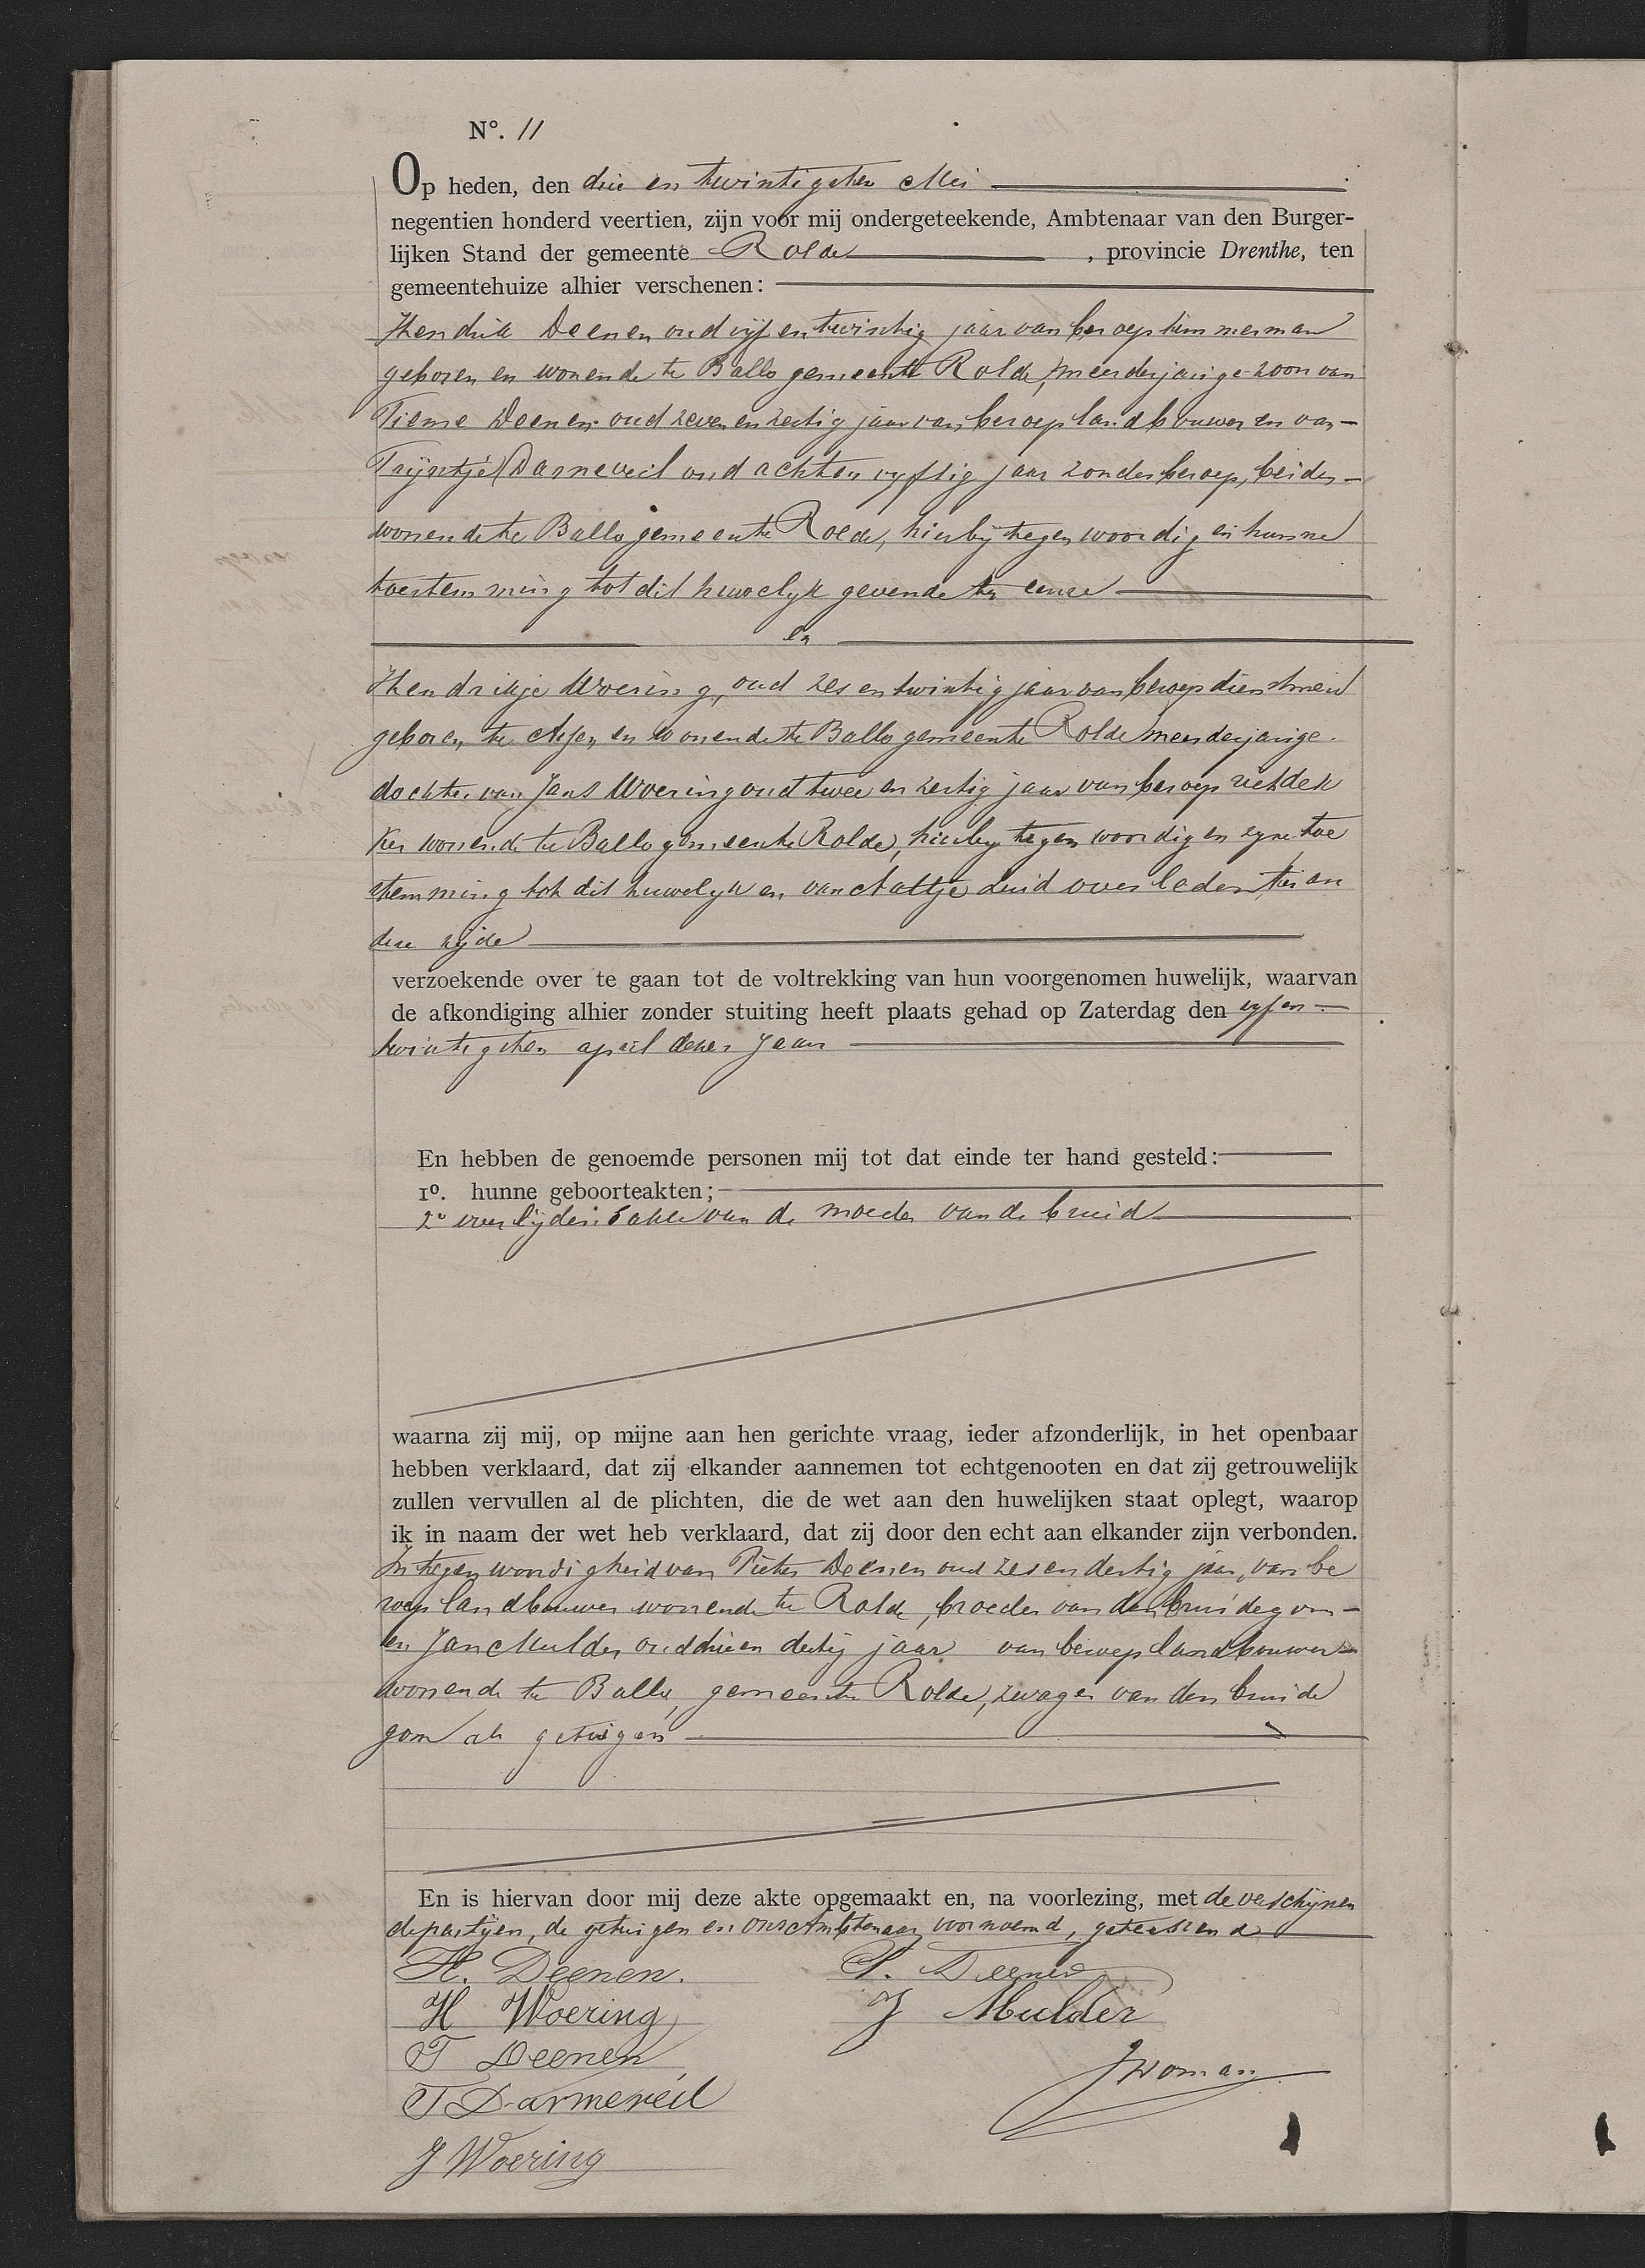 N°. 11
Op heden, den drie en twintigsten Mei
negentien honderd veertien, zijn voor mij ondergeteekende, Ambtenaar van den Burger-
lijken Stand der gemeente Rolde, provincie Drenthe, ten
gemeentehuize alhier verschenen:
Hendrik Deenen oud vijf en twintig jaar van beroep timmerman
geboren en wonende te Ballo gemeente Rolde, meerderjarige zoon van
Tieme Deenen oud zeven en zestig jaar van beroep landbouwer en van
Trijntje Darneveil oud acht en vyftig jaar zonder beroep, beiden
wonende te Ballo gemeente Rolde, hierbij tegenwoordig en hunne
toestemming tot dit huwelyk gevende ter eenre
en
Hendrikje Woering, oud zes en twintig jaar van beroep dienstmeid
geboren te Assen en wonende te Ballo gemeente Rolde meerderjarige
dochter van Jans Woering oud twee en zestig jaar van beroep rietdek
ker wonende te Ballo gemeente Rolde, hierby tegenwoordig en zyne toe
stemming tot dit huwelyk en van Aaltje Luid overleden, ter an
dere zijde
verzoekende over te gaan tot de voltrekking van hun voorgenomen huwelijk, waarvan
de afkondiging alhier zonder stuiting heeft plaats gehad op Zaterdag den vyf en
twintigsten april dezes jaars
En hebben de genoemde personen mij tot dat einde ter hand gesteld:
1°. hunne geboorteakten;
2° overlijdensakte van de moeder van de bruid
waarna zij mij, op mijne aan hen gerichte vraag, ieder afzonderlijk, in het openbaar
hebben verklaard, dat zij elkander aannemen tot echtgenooten en dat zij getrouwelijk
zullen vervullen al de plichten, die de wet aan den huwelijken staat oplegt, waarop
ik in naam der wet heb verklaard, dat zij door den echt aan elkander zijn verbonden.
In tegenwoordigheid van Pieter Deenen oud zes en dertig jaar, van be
roep landbouwer wonende te Rolde, broeder van den bruidegom
en Jan Mulder oud drie en dertig jaar van beroep landbouwer
wonende te Ballo, gemeente Rolde, zwager van den bruide
gom als getuigen
En is hiervan door mij deze akte opgemaakt en, na voorlezing, met de verschijnen
de partijen, de getuigen en ons Ambtenaar voornoemd, geteekend
H. Deenen. P. Deenen
H Woering J Mulder
T Deenen
T Darmeveil
J Woering